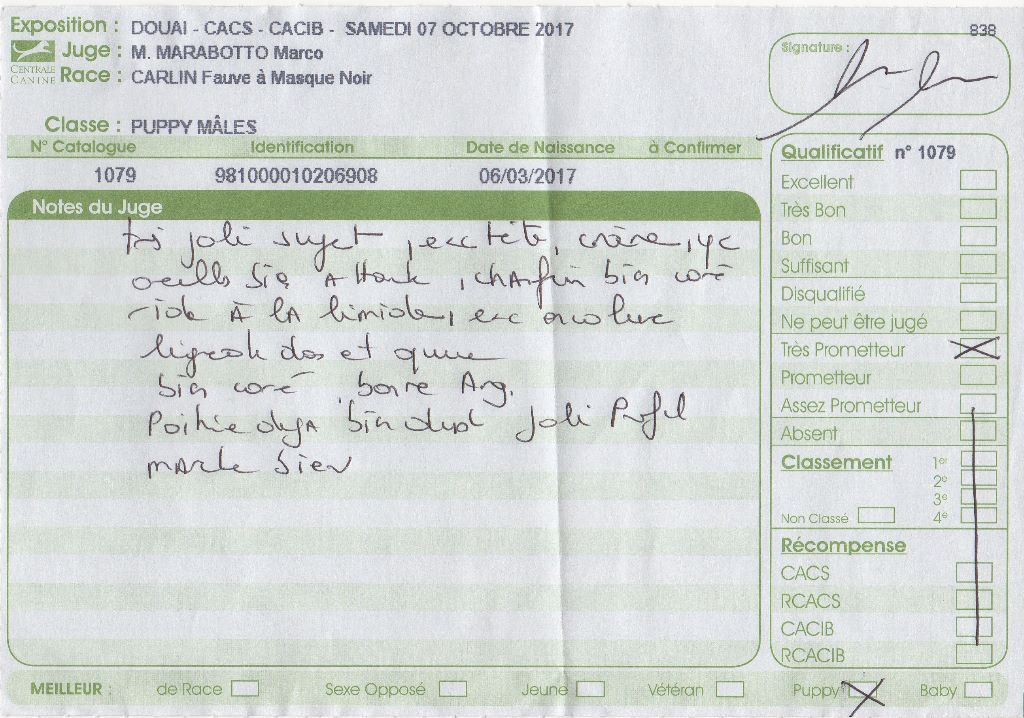 Exposition : DOUAI - CACS - CACIB - SAMEDI 07 OCTOBRE 2017
838
CENTRALE CANINE
Juge : M. MARABOTTO Marco
Race : CARLIN Fauve à Masque Noir
Signature :
Classe : PUPPY MÂLES
N° Catalogue Identification Date de Naissance à Confirmer
1079 981000010206908 06/03/2017
Notes du Juge
joli sujet, exc tête, crâne, yx
bien
À LA
dos et queue
bien bonne Ang.
Poitrine déjà bien joli Profil
MARche bien
Qualificatif n° 1079
Excellent
Très Bon
Bon
Suffisant
Disqualifié
Ne peut être jugé
Très Prometteur
Prometteur
Assez Prometteur
Absent
Classement 1er
2e
3e
Non Classé 4e
Récompense
CACS
RCACS
CACIB
RCACIB
MEILLEUR : de Race Sexe Opposé Jeune Vétéran Puppy Baby